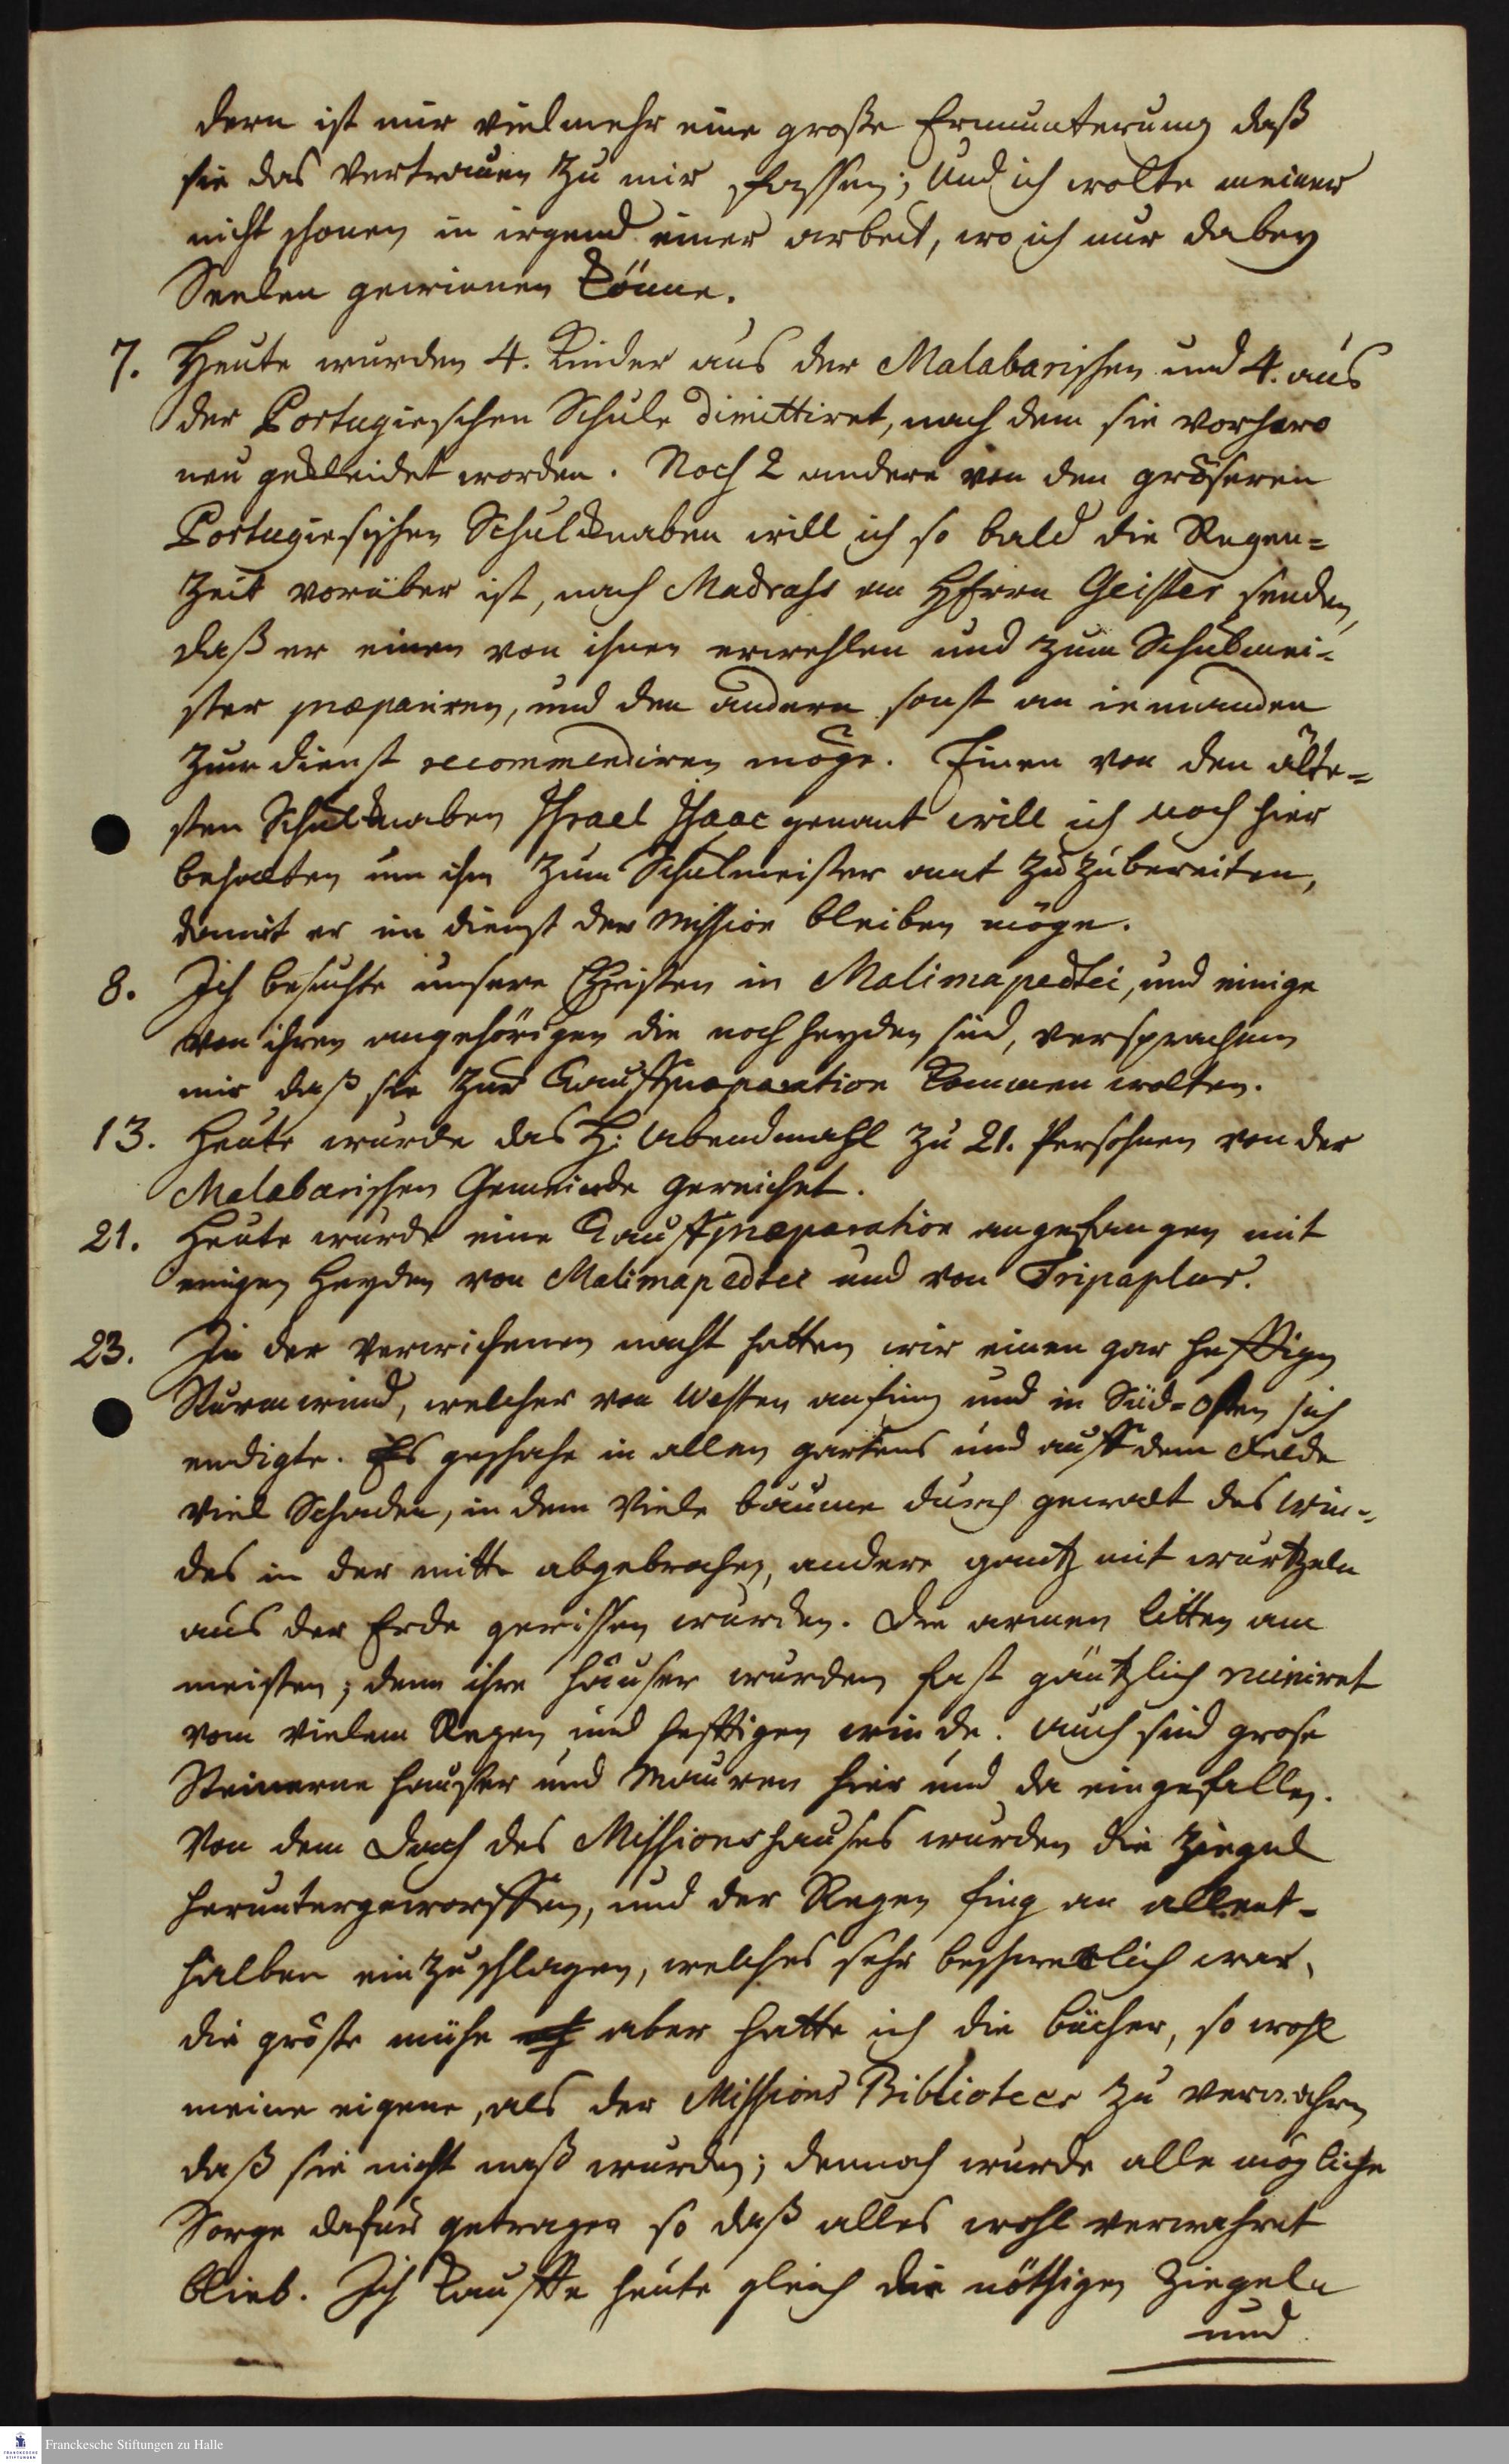 dern ist mir vielmehr eine große Ermunterung daß
sie das Vertrauen zu mir fassen; Und ich wolte meiner
nicht schonen in irgend einer arbeit, wo ich nur dabey
Seelen gewinnen könne.
7. Heute wurden 4. Kinder aus der Malabarischen und 4. aus
der Portugieschen Schule dimittiret, nach dem sie vorhero
neu gekleidet worden. Noch 2 andere von den gröseren
Portugiesischen Schulknaben will ich so bald die Regen=
Zeit vorüber ist, nach Madrass an HErrn Geister senden,
daß er einen von ihnen erwehlen und zum Schulmei=
ster præpariren, und den andern sonst an iemanden
zum dienst recommendiren möge. Einen von den älte=
sten Schulknaben Israel Isaac genant will ich noch hier
behalten um ihn zum Schulmeister amt zuzubereiten,
damit er im dienst der Mission bleiben möge.
8. Ich besuchte unsere Christen in Malimapedtei, und einige
von ihren angehörigen die noch heyden sind, versprachen
mir daß sie zur Tauffpræparation kommen wolten.
13. Heute wurde das H: Abendmahl zu 21. Persohnen von der
Malabarischen Gemeinde gereichet.
21. Heute wurde eine Tauffpræparation angefangen mit
einigen Heyden von Malimapedtei und von Tripaplur.
23. In der verwichenen nacht hatten wir einen gar hefftigen
Sturmwind, welcher von Westen anfing und in Süd=Osten sich
endigte. Es geschahe in allen gartens und auff dem Felde
viel Schaden, in dem Viele bäume durch gewalt des Win=
des in der mitte abgebrochen, andere gantz mit wurtzeln
aus der Erde gerissen wurden. Die armen litten am
meisten; denn ihre häuser wurden fast gäntzlich ruiniret
vom vielem Regen und hefftigen winde. Auch sind grose
Steinerne häuser und Mauren hier und da eingefallen.
Von dem Dach des Missionshauses wurden die Ziegel
heruntergeworffen, und der Regen fing an allent=
halben einzuschlagen, welches sehr beschwerlich war.
die gröste mühe aber hatte ich die bücher, so wohl
meine eigene, als der Missions Bibliotecs zu verwahren
daß sie nicht naß wurden; dennoch wurde alle mögliche
Sorge dafür getragen so daß alles wohl verwahret
blieb. Ich kauffte heute gleich die nöthigen Ziegeln
und
Franckesche Stiftungen zu Halle